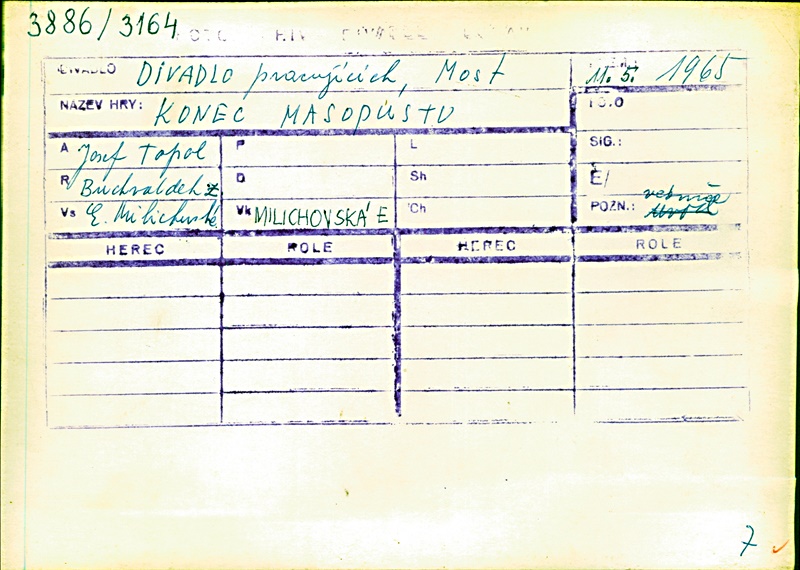 3886/3164
DIVADLO DIVADLO pracujících, Most 11. 5. 1965
NÁZEV HRY: KONEC MASOPUSTU
A Josef Topol P L SIG.:
R Buchvaldek Z D Sh Č/
Vs E. Milichovská Vk MILICHOVSKÁ E Ch POZN.:
HEREC ROLE HEREC ROLE
7